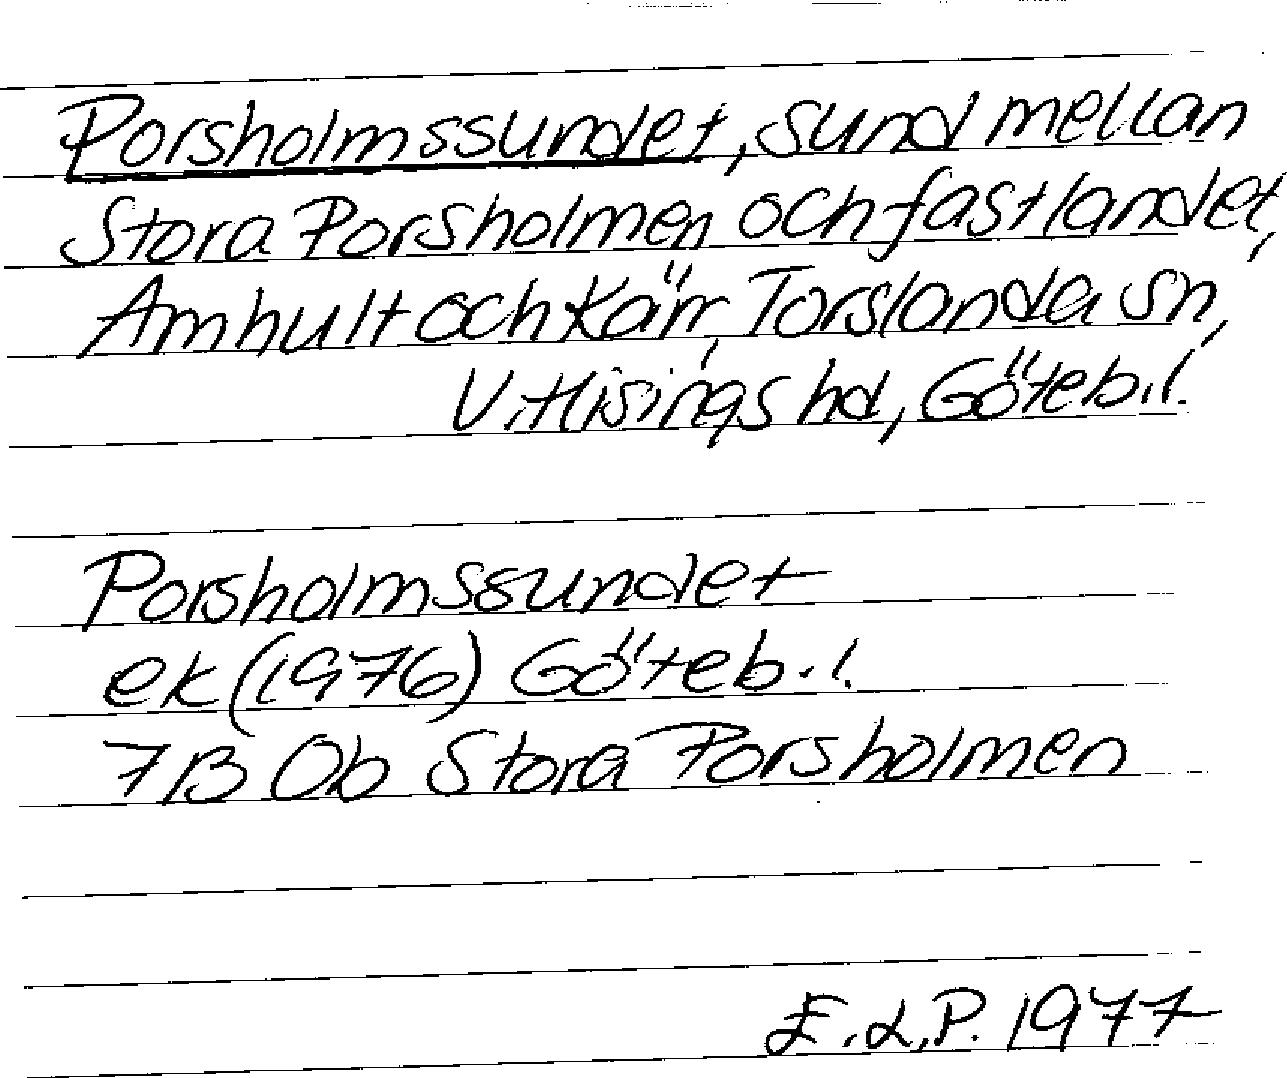 Porsholmssundet, sund mellan
Stora Porsholmen och fastlandet,
Amhult och Kärr, Torslanda sn,
V. Hisings hd, Göteb. l.
Porsholmssundet
ek (1976) Göteb. l.
7B 0b Stora Porsholmen
E.L.P. 1977